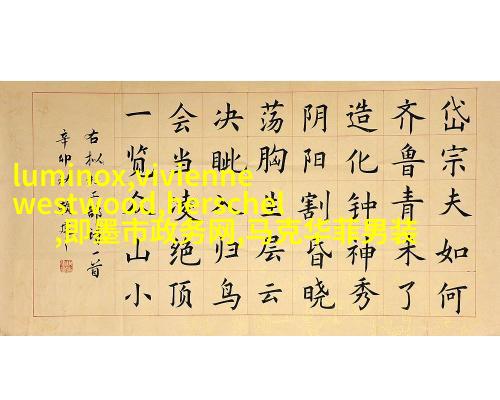 岱宗夫如何
齐鲁青未了
造化钟神秀
阴阳割昏晓
荡胸生层云
决眦入归鸟
会当凌绝顶
一览众山小
右拟 一首
辛卯
luminox,vivienne
westwood,herschel
,即墨市政务网,马克华菲男装